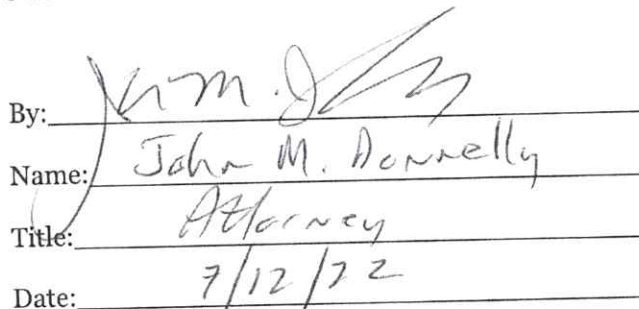 By:
Name: John M. Donnelly
Title: Attorney
Date: 7/12/22